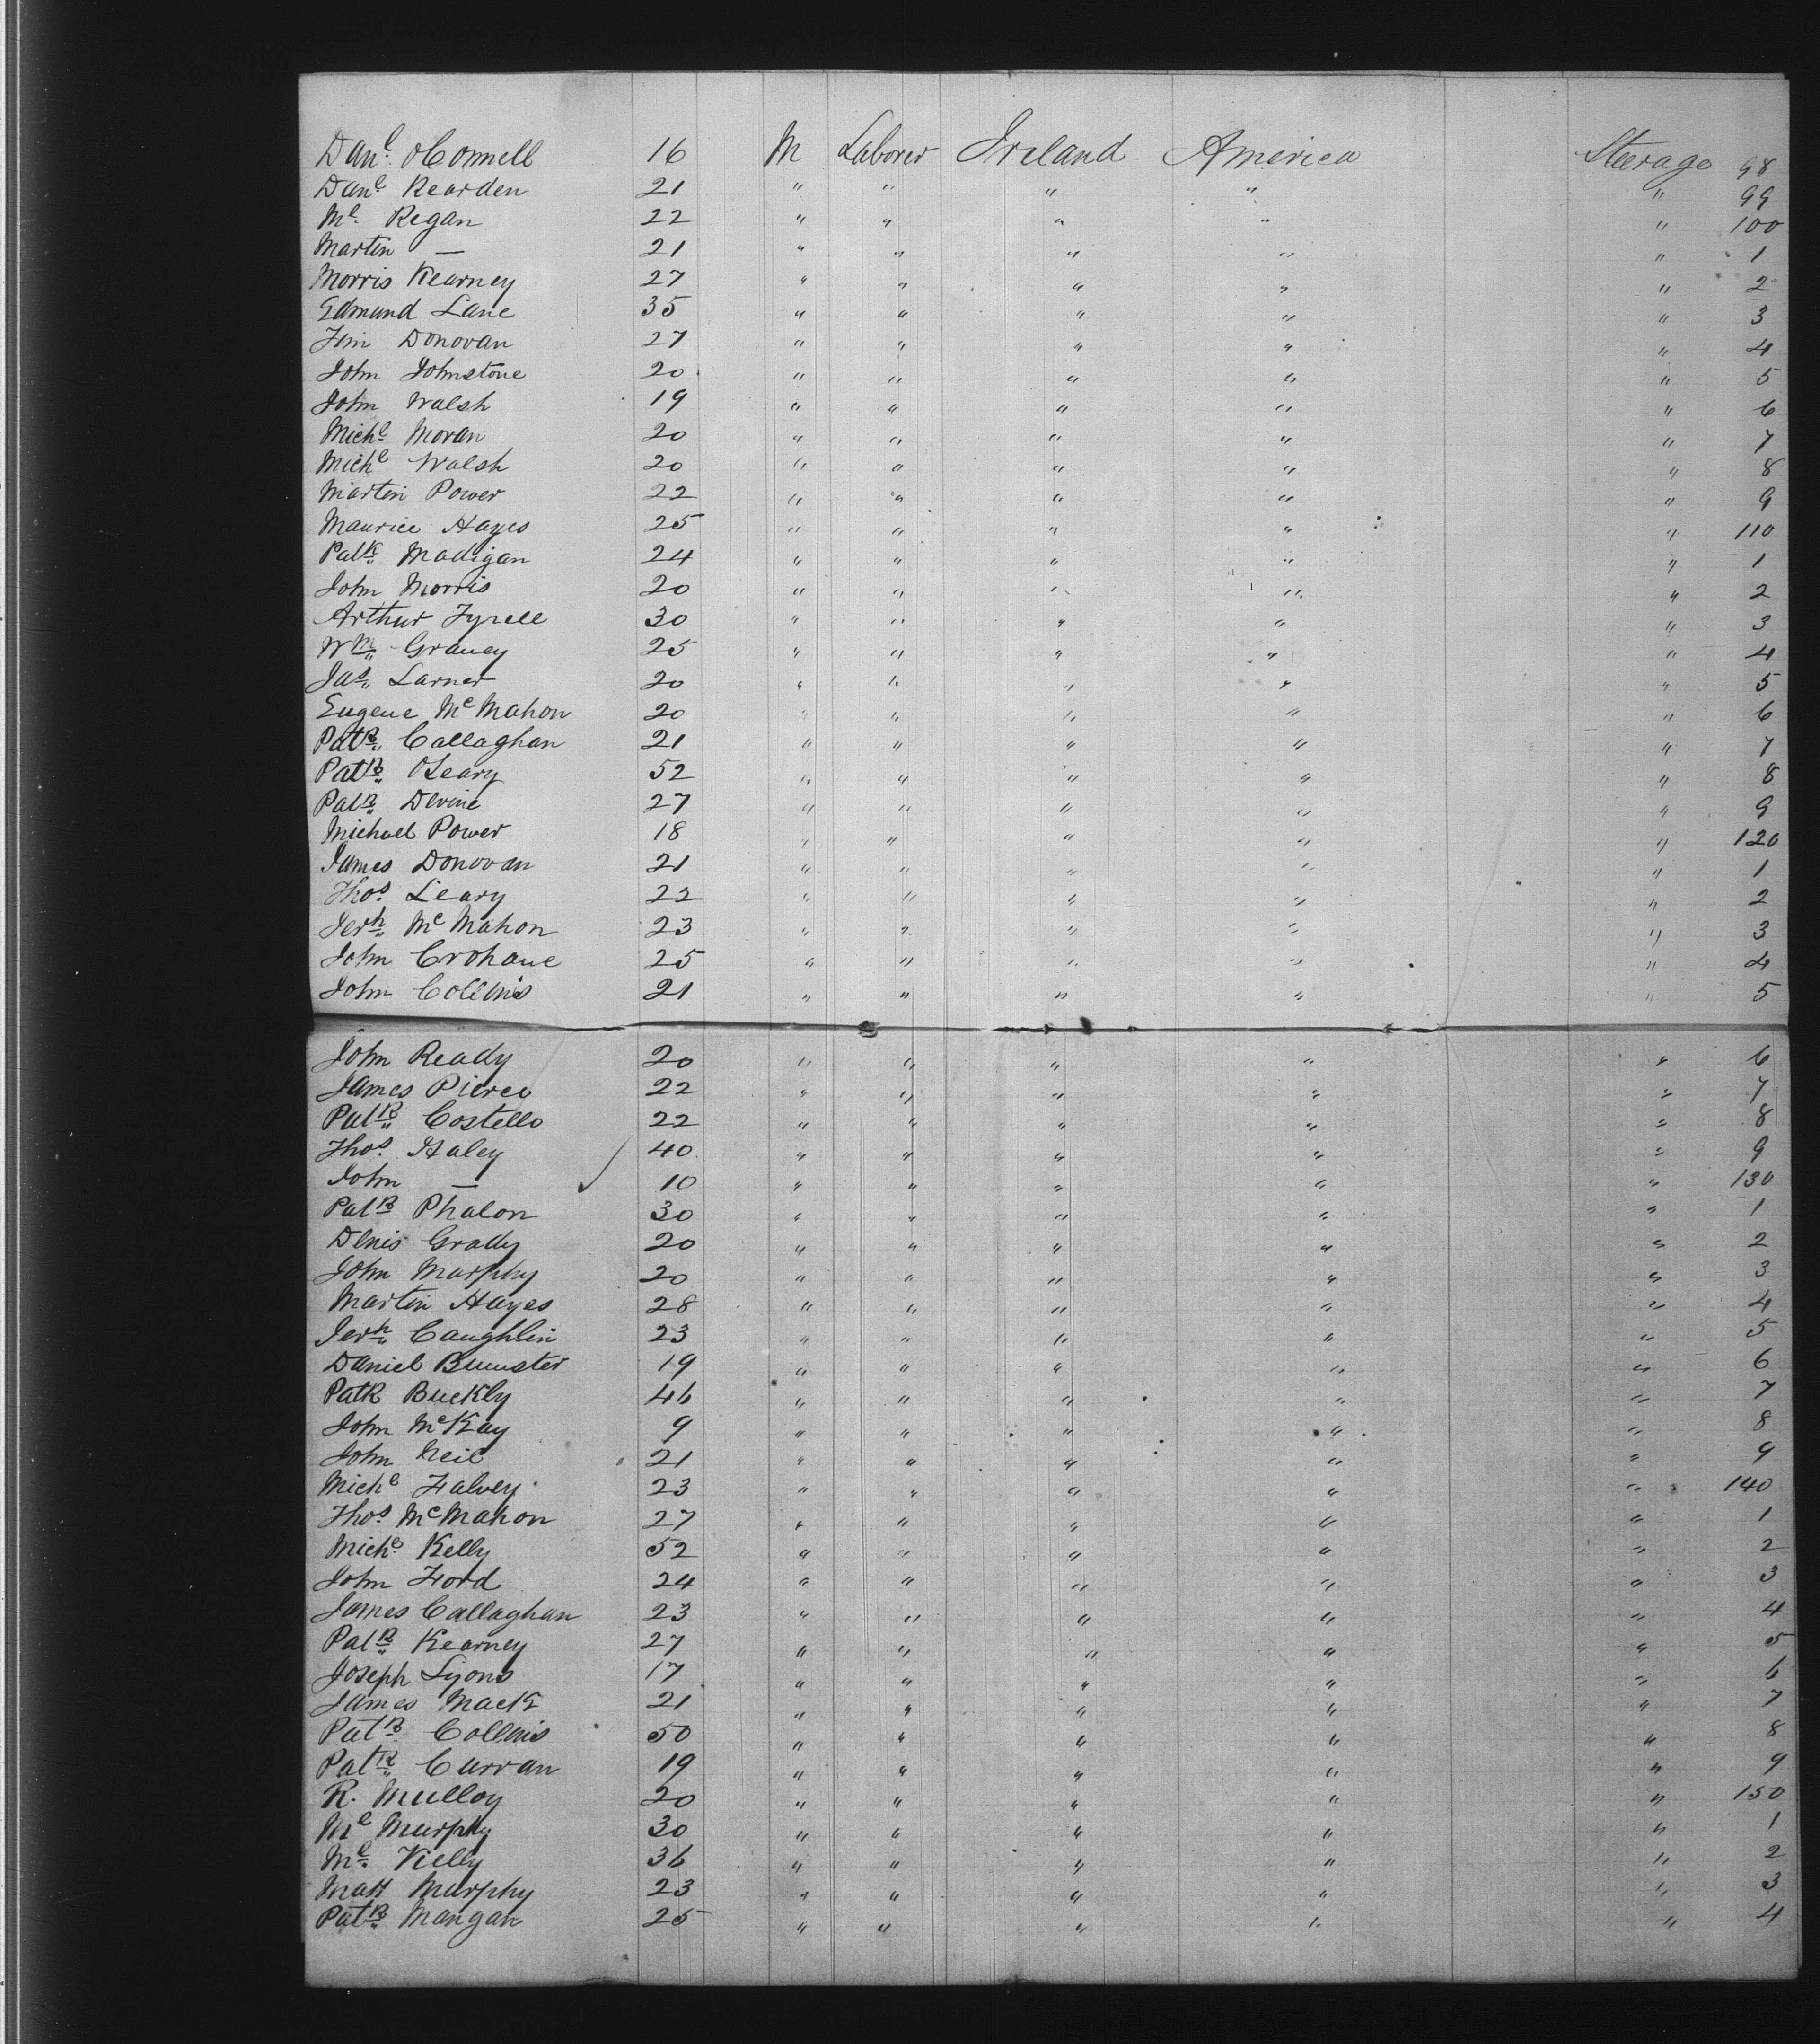 Danl. OConnell 16 M Laborer Ireland America Steerage 98
Danl. Rearden 21 " " " " " 99
Ml. Regan 22 " " " " " 100
Martin — 21 " " " " " 1
Morris Kearney 27 " " " " " 2
Edmund Lane 35 " " " " " 3
Tim Donovan 27 " " " " " 4
John Johnstone 20 " " " " " 5
John Walsh 19 " " " " " 6
Michl Moran 20 " " " " " 7
Michl Walsh 20 " " " " " 8
Martin Power 22 " " " " " 9
Maurice Hayes 25 " " " " " 110
Patk Madigan 24 " " " " " 1
John Morris 20 " " " " " 2
Arthur Tyrell 30 " " " " " 3
Wm Graney 25 " " " " " 4
Jas Larner 20 " " " " " 5
Eugene McMahon 20 " " " " " 6
Patk Callaghan 21 " " " " " 7
Patk OLeary 52 " " " " " 8
Patk Devine 27 " " " " " 9
Michael Power 18 " " " " " 120
James Donovan 21 " " " " " 1
Thos. Leary 22 " " " " " 2
Jerh McMahon 23 " " " " " 3
John Crohane 25 " " " " " 4
John Collins 21 " " " " " 5
John Ready 20 " " " " " 6
James Pierce 22 " " " " " 7
Patk Costello 22 " " " " " 8
Thos. Haley 40 " " " " " 9
John — 10 " " " " " 130
Patk Phalon 30 " " " " " 1
Denis Grady 20 " " " " " 2
John Murphy 20 " " " " " 3
Martin Hayes 28 " " " " " 4
Jerh Caughlin 23 " " " " " 5
Daniel 19 " " " " " 6
Patk Buckly 46 " " " " " 7
John McKay 9 " " " " " 8
John Neil 21 " " " " " 9
Michl Falvey 23 " " " " " 140
Thos. McMahon 27 " " " " " 1
Michl. Kelly 52 " " " " " 2
John Ford 24 " " " " " 3
James Callaghan 23 " " " " " 4
Patk Kearney 27 " " " " " 5
Joseph Lyons 17 " " " " " 6
James Mack 21 " " " " " 7
Patk Collins 50 " " " " " 8
Patk Curran 19 " " " " " 9
R. Mulloy 20 " " " " " 150
Ml Murphy 30 " " " " " 1
Ml. Kielly 36 " " " " " 2
Matt Murphy 23 " " " " " 3
Patk Mangan 25 " " " " " 4